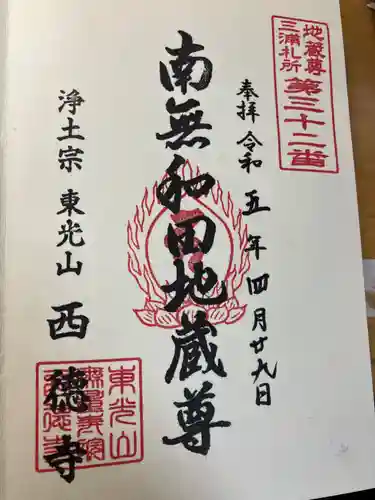 地蔵尊
三浦札所
第三十二番
奉拝 令和五年四月廿九日
南無和田地蔵尊
浄土宗 東光山 西徳寺
東光山